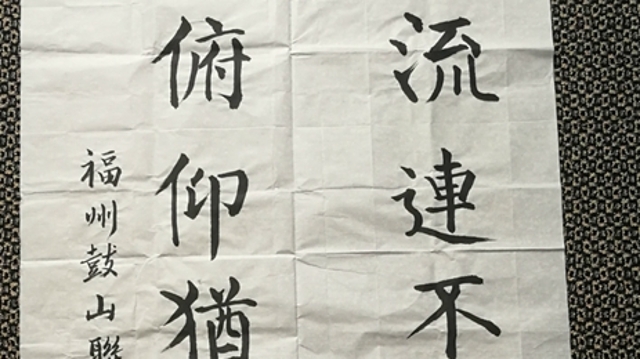 流連不
俯仰猶
福州鼓山聯